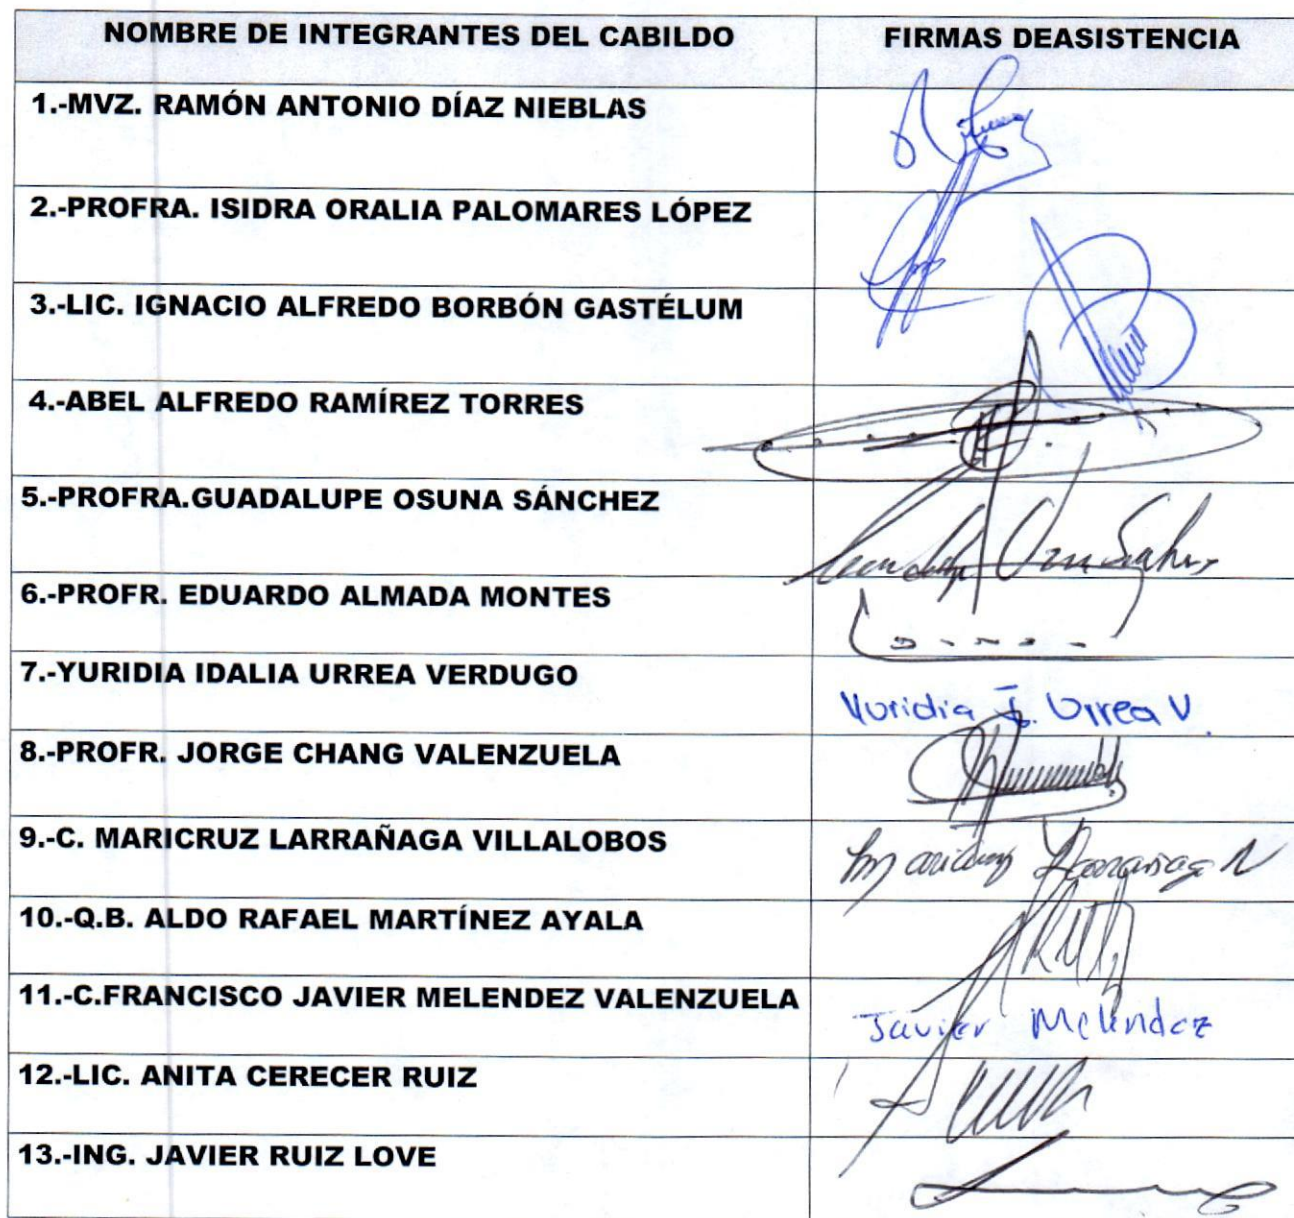 NOMBRE DE INTEGRANTES DEL CABILDO FIRMAS DEASISTENCIA
1.-MVZ. RAMÓN ANTONIO DÍAZ NIEBLAS
2.-PROFRA. ISIDRA ORALIA PALOMARES LÓPEZ
3.-LIC. IGNACIO ALFREDO BORBÓN GASTÉLUM
4.-ABEL ALFREDO RAMÍREZ TORRES
5.-PROFRA.GUADALUPE OSUNA SÁNCHEZ
6.-PROFR. EDUARDO ALMADA MONTES
7.-YURIDIA IDALIA URREA VERDUGO Yuridia I. Urrea V.
8.-PROFR. JORGE CHANG VALENZUELA
9.-C. MARICRUZ LARRAÑAGA VILLALOBOS Maricruz Larrañaga V
10.-Q.B. ALDO RAFAEL MARTÍNEZ AYALA
11.-C.FRANCISCO JAVIER MELENDEZ VALENZUELA Javier Melendez
12.-LIC. ANITA CERECER RUIZ
13.-ING. JAVIER RUIZ LOVE